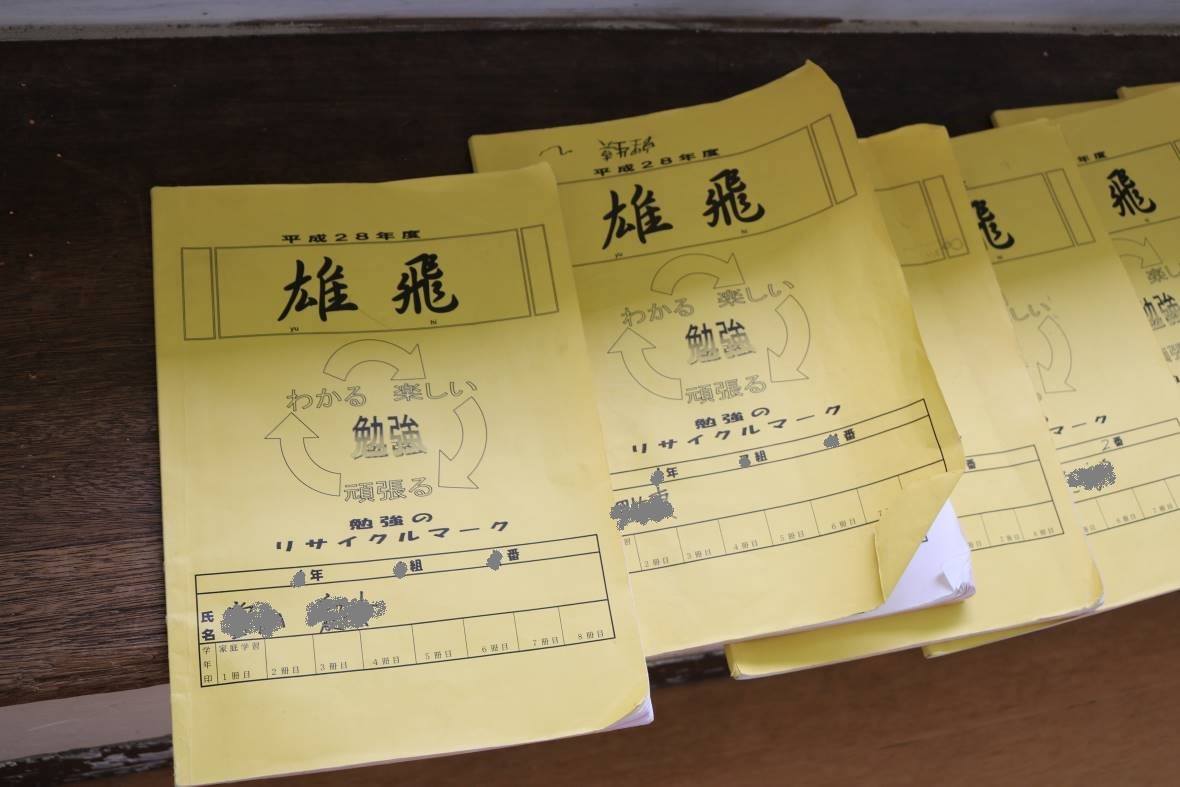 平成28年度
雄飛
yu hi
わかる 楽しい
勉強
頑張る
勉強の
リサイクルマーク
年 組 番
氏名
学年印 家庭学習
1冊目 2冊目 3冊目 4冊目 5冊目 6冊目 7冊目 8冊目
平成28年度
雄飛
yu hi
わかる 楽しい
勉強
頑張る
勉強の
リサイクルマーク
年 組 番
習
2冊目 3冊目 4冊目 5冊目 6冊目 7
飛
しい
番
7冊目 8冊目
年度
飛
楽
勉強
マーク
2番
6冊目 7冊目